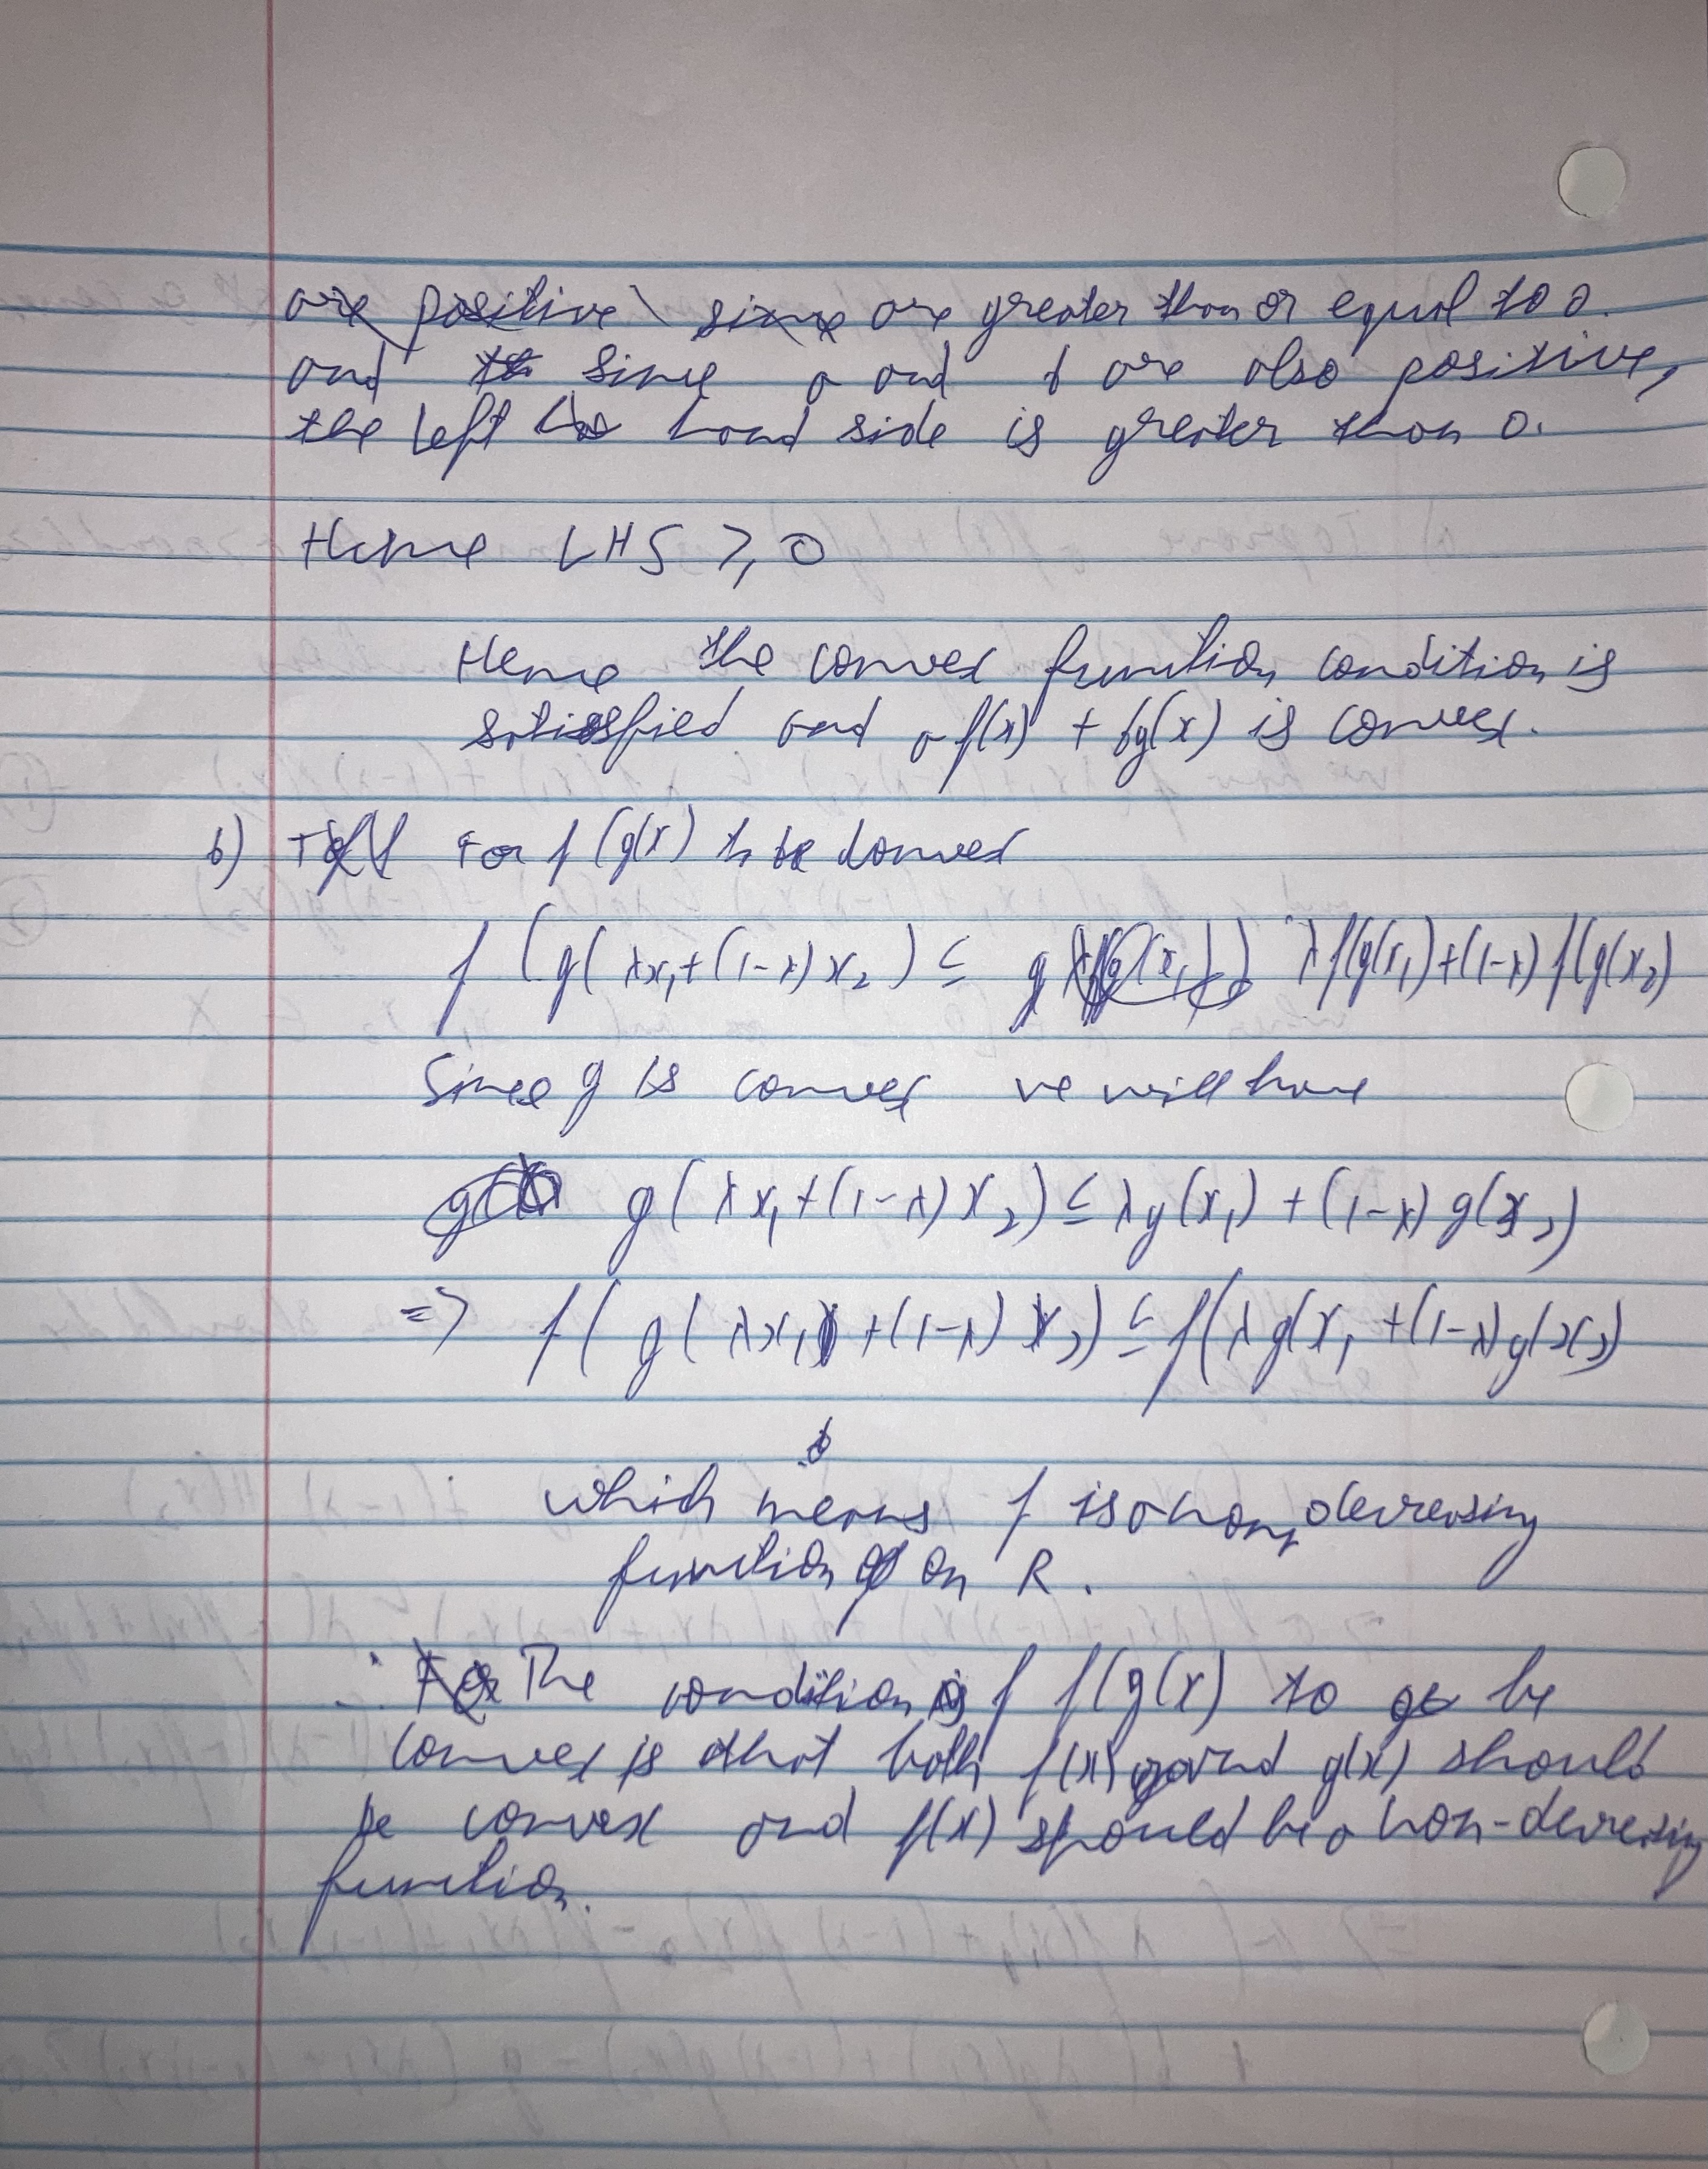 are greater than or equal to 0.
and since a and b are also positive,
the left hand side is greater than 0.
Hence LHS ≥ 0
Hence the convex function condition is
satisfied and a f(x) + bg(x) is convex.
b) For f(g(x) to be convex
f(g(λx₁+(1-λ)x₂) ≤ λf(g(x₁)+(1-λ)f(g(x₂)
Since g is convex we will have
g(λx₁+(1-λ)x₂) ≤ λg(x₁) + (1-λ)g(x₂)
=> f(g(λx₁+(1-λ)x₂) ≤ f(λg(x₁+(1-λ)g(x₂)
which means f is a non decreasing
function on R.
∴ The condition of f(g(x) to be
convex is that both f(x) and g(x) should
be convex and f(x) should be a non-decreasing
function.